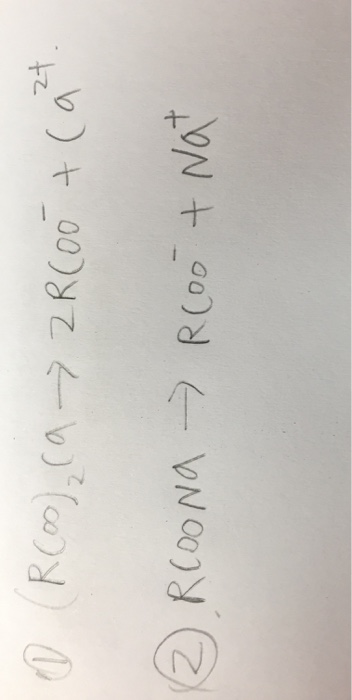 ① (RCOO)₂Ca → 2RCOO⁻ + Ca²⁺.
②. RCOONa → RCOO⁻ + Na⁺